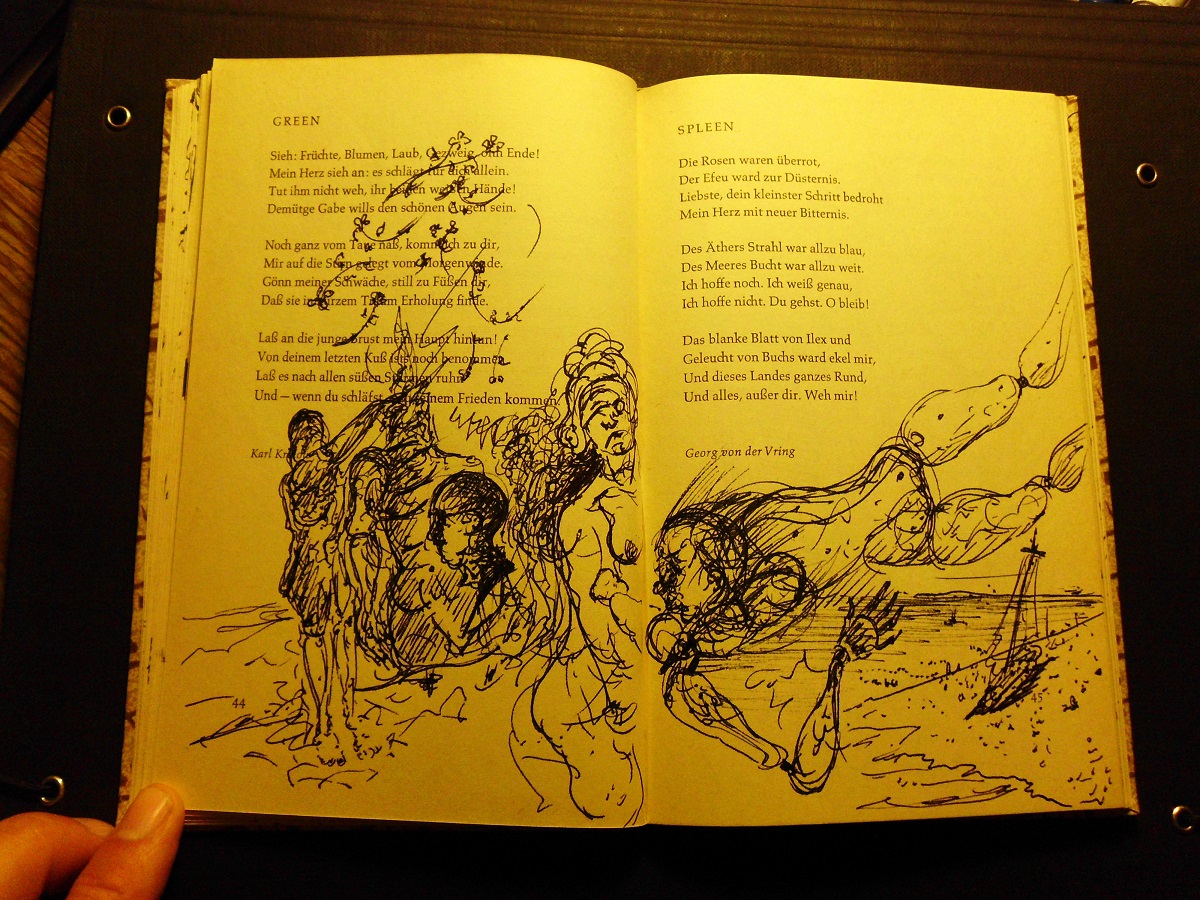 GREEN
Sieh: Früchte, Blumen, Laub, Gezweig, ohn Ende!
Mein Herz sieh an: es schlägt für dich allein.
Tut ihm nicht weh, ihr beiden weißen Hände!
Demütge Gabe wills den schönen Augen sein.
Noch ganz vom Taue naß, komm ich zu dir,
Mir auf die Stirn gelegt vom Morgenwinde.
Gönn meiner Schwäche, still zu Füßen dir,
Daß sie in kurzem Traum Erholung finde.
Laß an die junge Brust mein Haupt hintun!
Von deinem letzten Kuß ists noch benommen.
Laß es nach allen süßen Stürmen ruhn
Und — wenn du schläfst, deinem Frieden kommen.
Karl
44
SPLEEN
Die Rosen waren überrot,
Der Efeu ward zur Düsternis.
Liebste, dein kleinster Schritt bedroht
Mein Herz mit neuer Bitternis.
Des Äthers Strahl war allzu blau,
Des Meeres Bucht war allzu weit.
Ich hoffe noch. Ich weiß genau,
Ich hoffe nicht. Du gehst. O bleib!
Das blanke Blatt von Ilex und
Geleucht von Buchs ward ekel mir,
Und dieses Landes ganzes Rund,
Und alles, außer dir. Weh mir!
Georg von der Vring
45